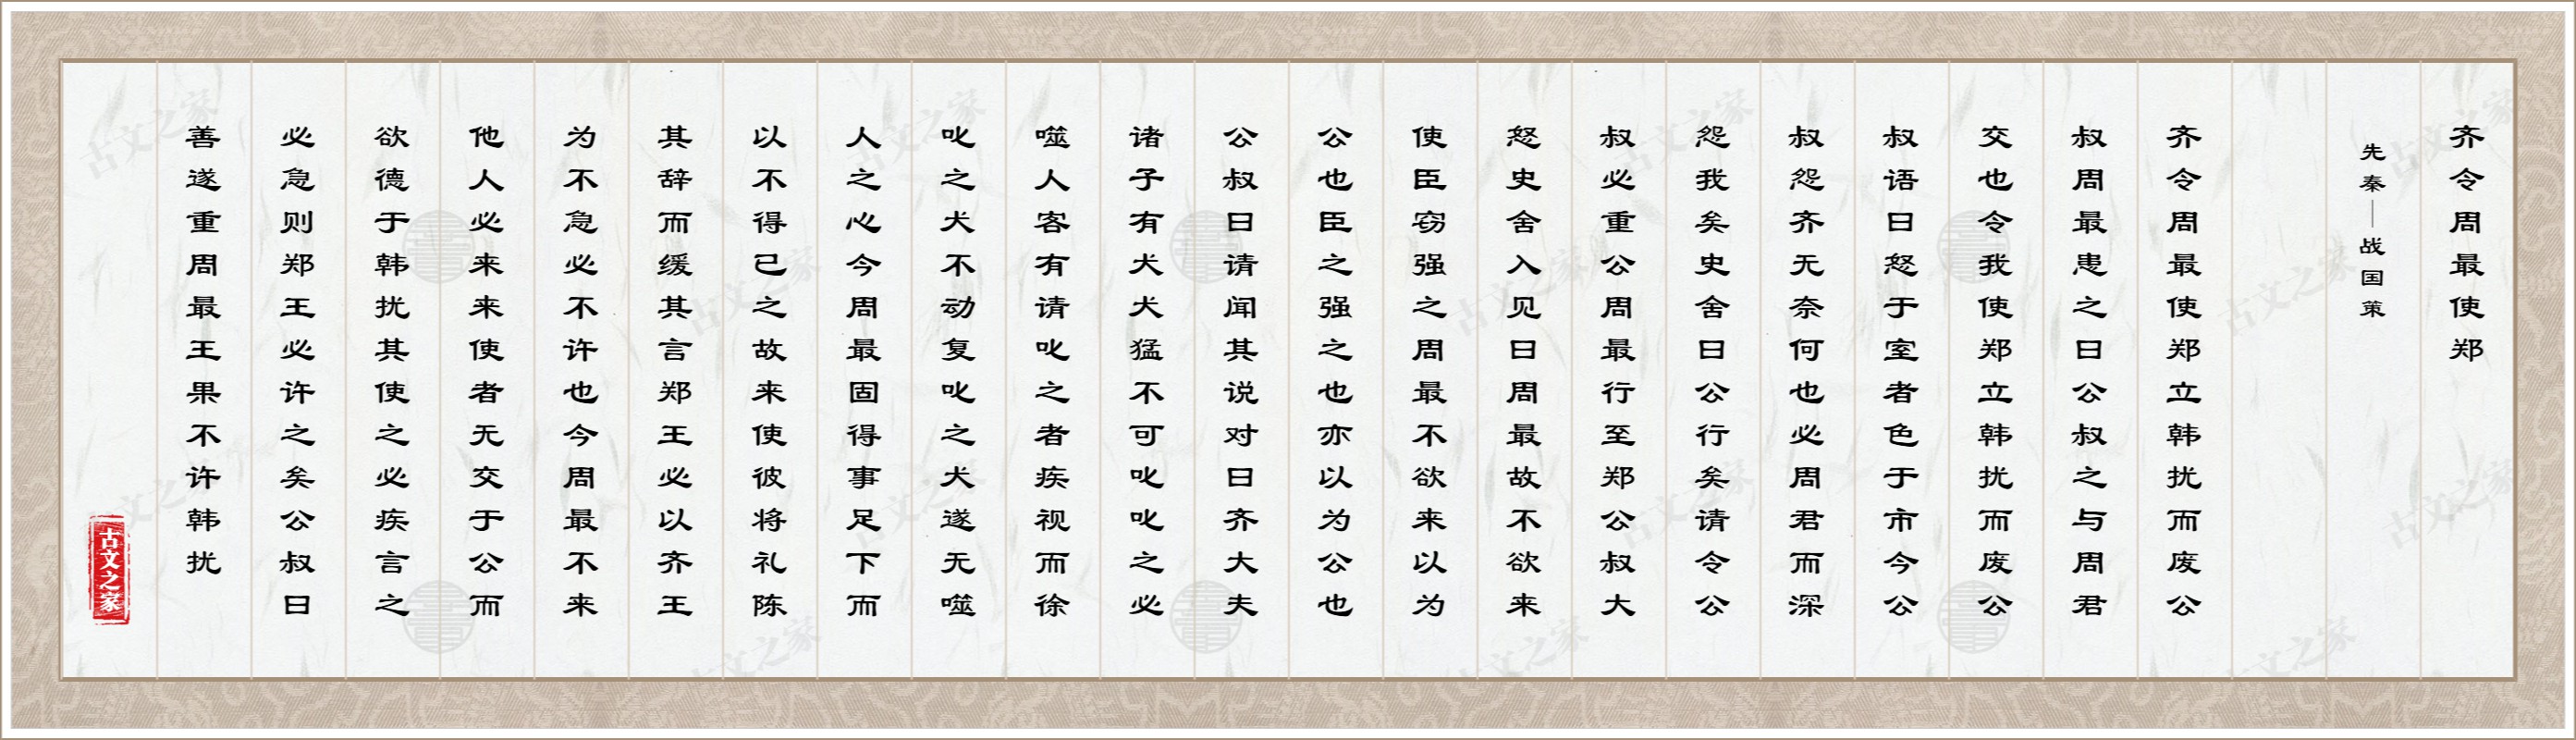 齐令周最使郑
先秦—战国策
齐令周最使郑立韩扰而废公
叔周最患之曰公叔之与周君
交也令我使郑立韩扰而废公
叔语曰怒于室者色于市今公
叔怨齐无奈何也必周君而深
怨我矣史舍曰公行矣请令公
叔必重公周最行至郑公叔大
怒史舍入见曰周最故不欲来
使臣窃强之周最不欲来以为
公也臣之强之也亦以为公也
公叔曰请闻其说对曰齐大夫
诸子有犬犬猛不可叱叱之必
噬人客有请叱之者疾视而徐
叱之犬不动复叱之犬遂无噬
人之心今周最固得事足下而
以不得已之故来使彼将礼陈
其辞而缓其言郑王必以齐王
为不急必不许也今周最不来
他人必来来使者无交于公而
欲德于韩扰其使之必疾言之
必急则郑王必许之矣公叔曰
善遂重周最王果不许韩扰
古文之家